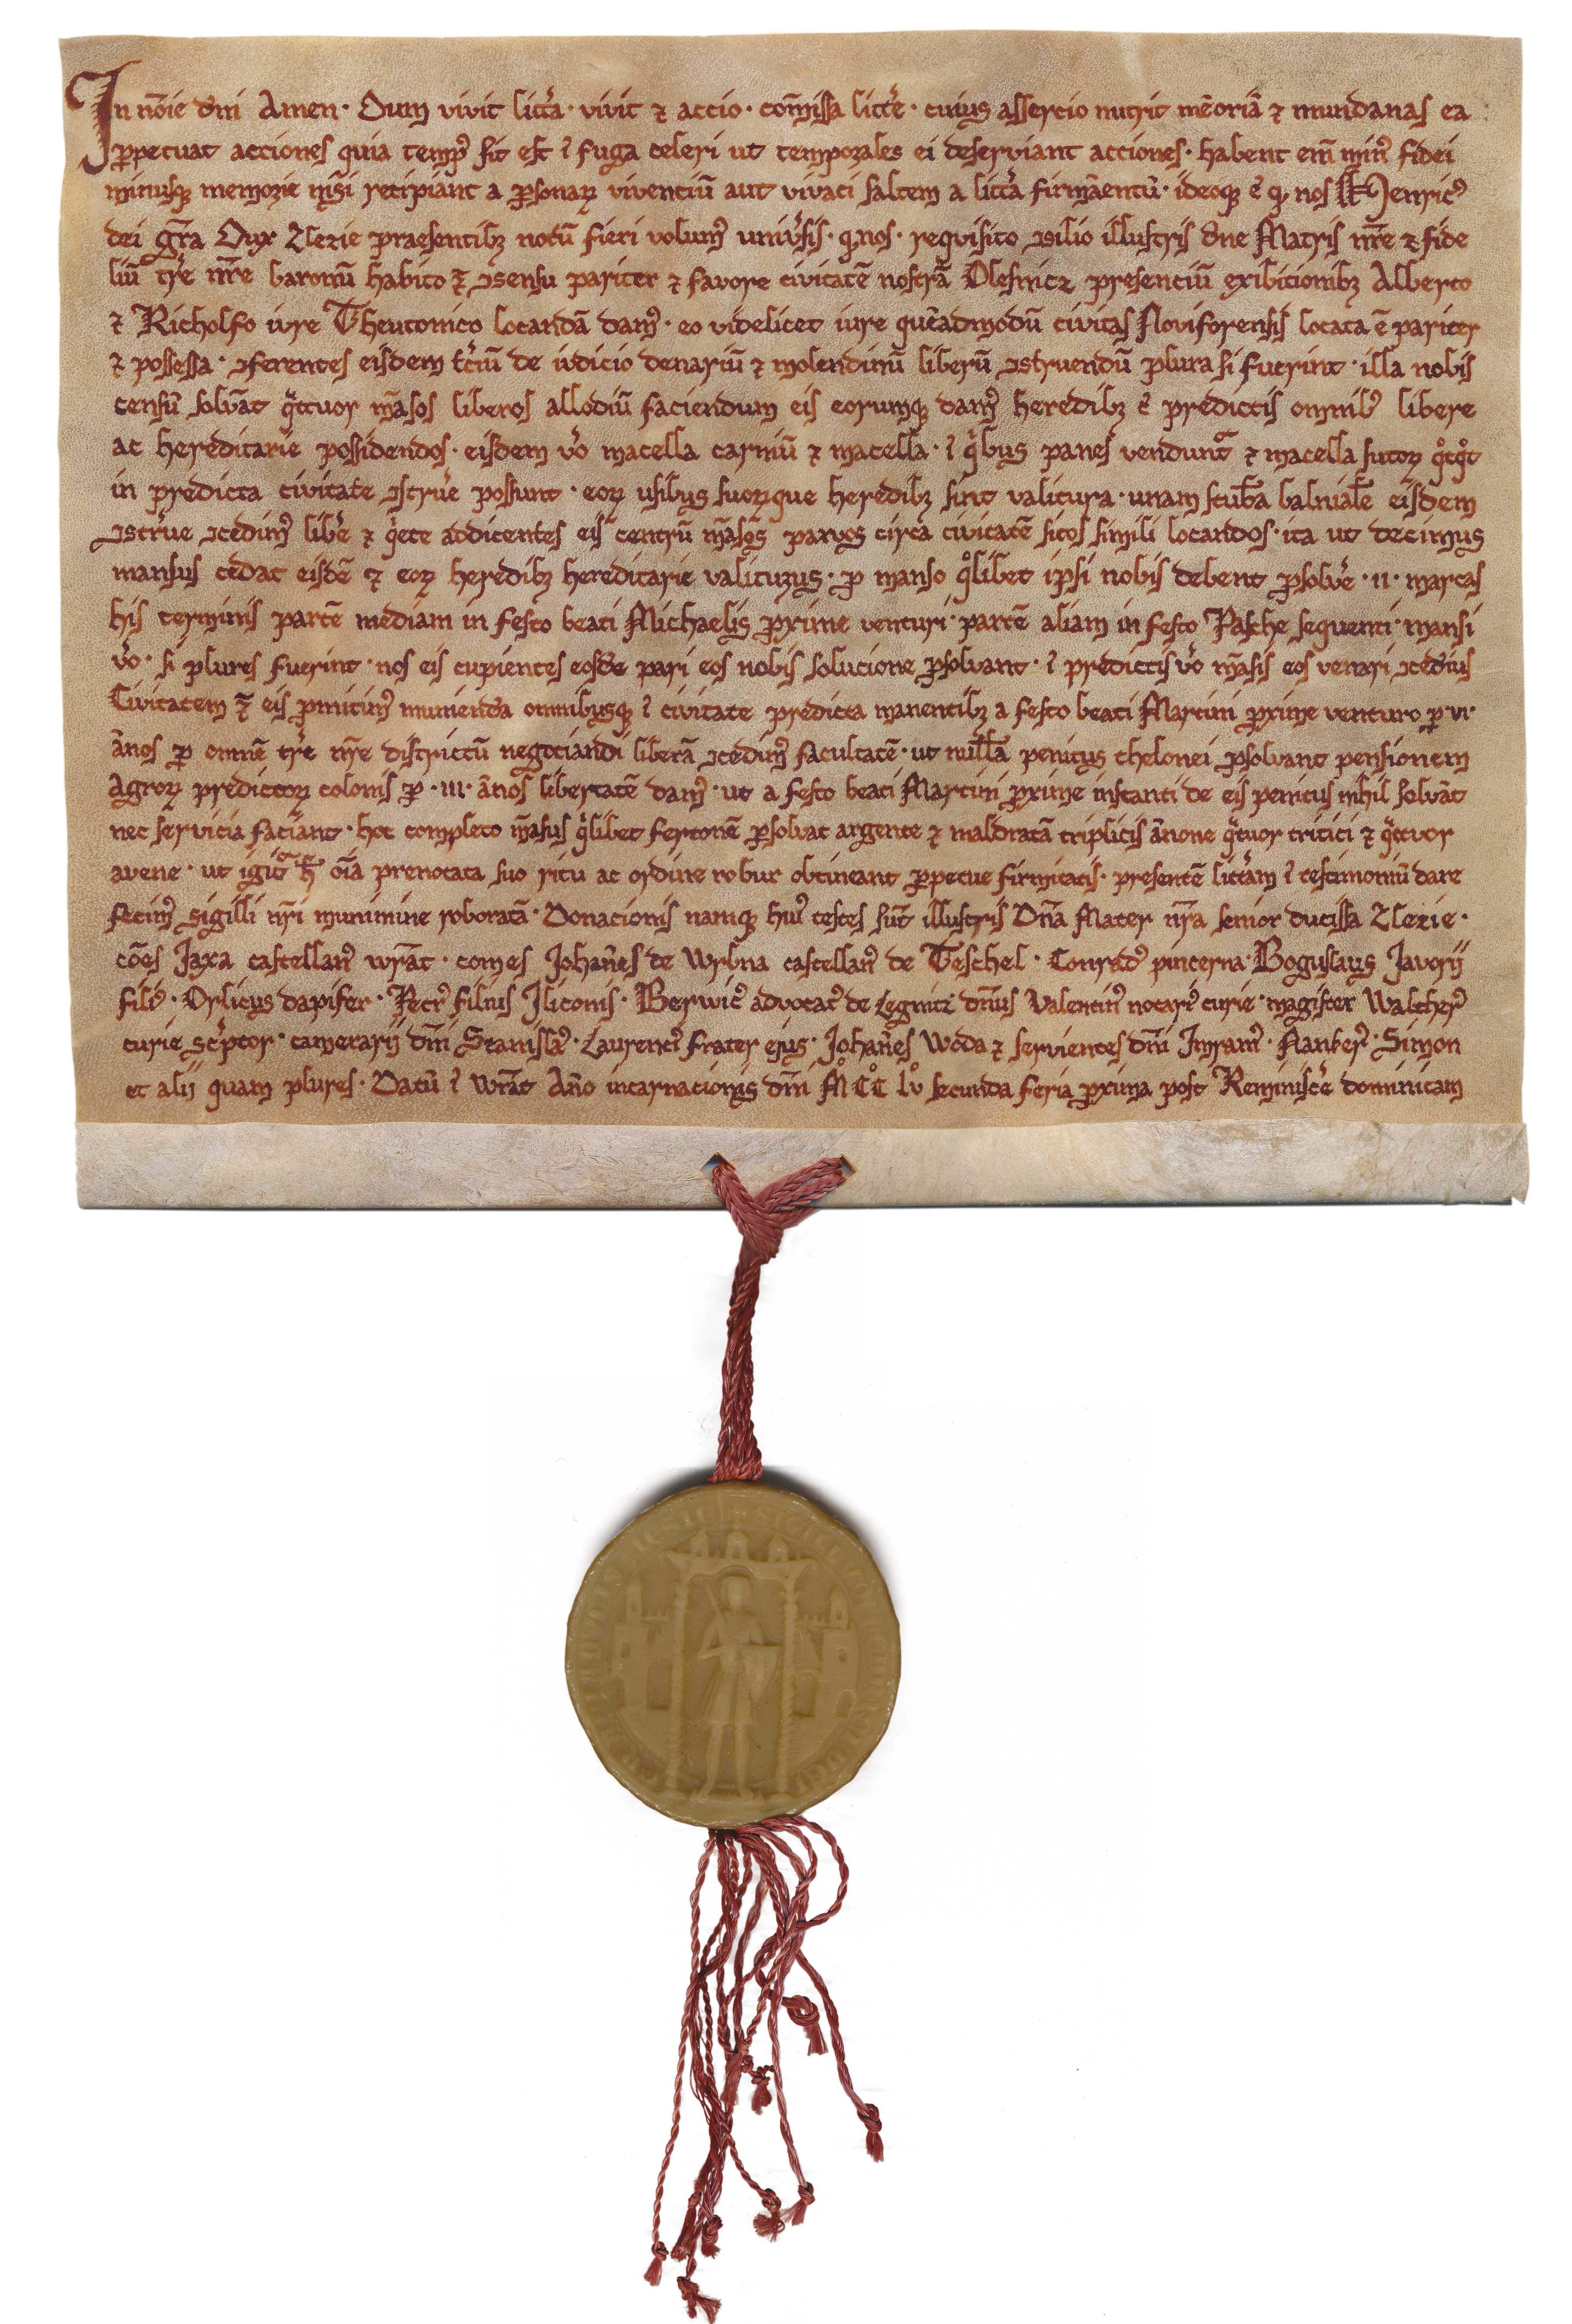 In nōīe dn̄i Amen · Dum vivit litt̄a · vivit ⁊ accio · com̄issa litt̄e · cuius assercio nutrit mēoriā ⁊ mundanas ea
ꝑpetuat acciones quia temp⁹ sit est ī fuga celeri ut temporales ei deserviant acciones · habent em̄ min⁹ fidei
minusqꝫ memorie nisi recipiant a ꝑsonaꝝ vivenciū aut vivaci saltem a litt̄a firmāentū · ideoqꝫ ē nos Henric⁹
dei gr̄a Dux Zlezie praesentibꝫ notū fieri volum⁹ univ̄sis · q nos · requisito ꝯsilio illustris dn̄e Matris nr̄e ⁊ fide
liū tr̄e nr̄e baronū habito ⁊ ꝯsensu pariter ⁊ favore civitatē nostrā Olesnicz presenciū exibitionibꝫ Alberto
⁊ Richolfo iure Theutonico locandā dam⁹ · eo videlicet iure quēadmodū civitas Noviforensis locata ē pariter
⁊ possessa · ꝯferentes eisdem t̄ciū de iudicio denariū ⁊ molendinū liberū ꝯstruendū plura si fuerint · illa nobis
censū solvāt qͣtuor māsos liberos allodiū faciendum eis eorumqꝫ dam⁹ heredibꝫ ī predictis omnib⁹ libere
ac hereditarie possidendos · eisdem v̄o macella carniū ⁊ macella · ī qⁱbus panes vendunt᷑ ⁊ macella sutoꝝ qͦtqͦt
in predicta civitate ꝯstrūe possunt · eoꝝ usibus suoꝝque heredibꝫ sint valitura · unam stuba balniale eisdem
ꝯstrūe ꝯcedim⁹ lib̄e ⁊ qⁱete addicentes eis centū māsos parvos circa civitatē sitos simili locandos · ita ut decimus
mansus cedat eisdē ⁊ eoꝝ heredibꝫ hereditarie valiturus · ꝑ manso qͦlibet ipsi nobis debent ꝑsolv̄e · II · marcas
his terminis partē mediam in festo beati Michaelis ꝓxime venturi · partē aliam in festo Pasche sequenti · mansi
v̄o · si plures fuerint · nos eis cupientes eosdē pari eos nobis solucione ꝑsolvant · ī predictis v̄o māsis eos venari ꝯcedius
Civitatem ⁊ eis ꝓmitim⁹ munienda omnibusqꝫ ī civitate predicta manentibꝫ a festo beati Martini ꝓxime venturo ꝑ · VI ·
ānos ꝑ omnē tr̄e nr̄e districtū negociandi liberā ꝯcedim⁹ facultatē · ut nulla penitus thelonei ꝑsolvant pensionem
Agroꝝ predictoꝝ colonis ꝑ · III · ānos libertatē dam⁹ · ut a festo beati Martini ꝓxime instanti de eis penitus nihil solvāt
nec servicia faciant · hoc completo māsus qⁱlibet fertonē ꝑsolvat argente ⁊ maldratā triplicis ānone qͣtuor tritici ⁊ qͣtuor
avene · ut igit᷑ h̄ oīa prenotata suo ritu ac ordine robur obtineant ꝑpetue firmitatis · presentē litt̄am ī testimoniū dare
fecim⁹ sigilli nr̄i munimine roboratā · Donacionis namqꝫ hui⁹ testes sūt illustris Dn̄a Mater nr̄a senior ducissa Zlezie ·
cōēs Jaxa castellan⁹ wrāt · comes Johan̄es de Wrbna castellan⁹ de Teschel · Conrad⁹ pincerna · Boguslaus Javorij
fili⁹ · Orlicus dapifer · Petr⁹ filius Iliconis · Berwic⁹ advocat⁹ de Legnitz dn̄us Valentin⁹ notari⁹ curie · magister Walther⁹
curie sc̄ptor · camerarij dn̄i Stanisla⁹ · Laurenci⁹ frater ejus · Johan̄es Woda ⁊ servientes dn̄i Imram⁹ · Nanker⁹ · Simon
et alij quam plures · Datū ī Wrāt Ano incarnacionis dn̄i M̊ C̊C̊ lv secunda feria ꝓxima post Reminisc̄e dominicam